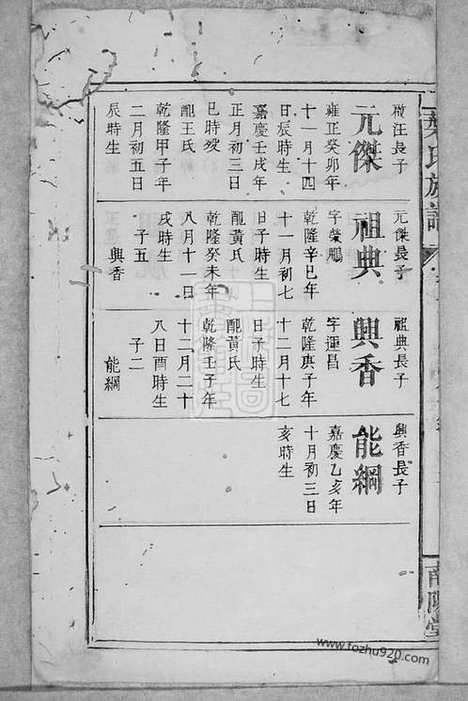 葉氏族譜
南陽堂
啟汪長子
元傑
雍正癸卯年
十一月十四
日辰時生
嘉慶壬戌年
正月初三日
巳時歿
配王氏
乾隆甲子年
二月初五日
辰時生
元傑長子
祖典
字榮鵬
乾隆辛巳年
十一月初七
日子時生
配黃氏
乾隆癸未年
八月十一日
戌時生
子五
興香
祖典長子
興香
字運昌
乾隆庚子年
十二月十七
日子時生
配黃氏
乾隆壬子年
十二月二十
八日酉時生
子二
能綱
興香長子
能綱
嘉慶乙亥年
十月初三日
亥時生
www.fozhu920.com